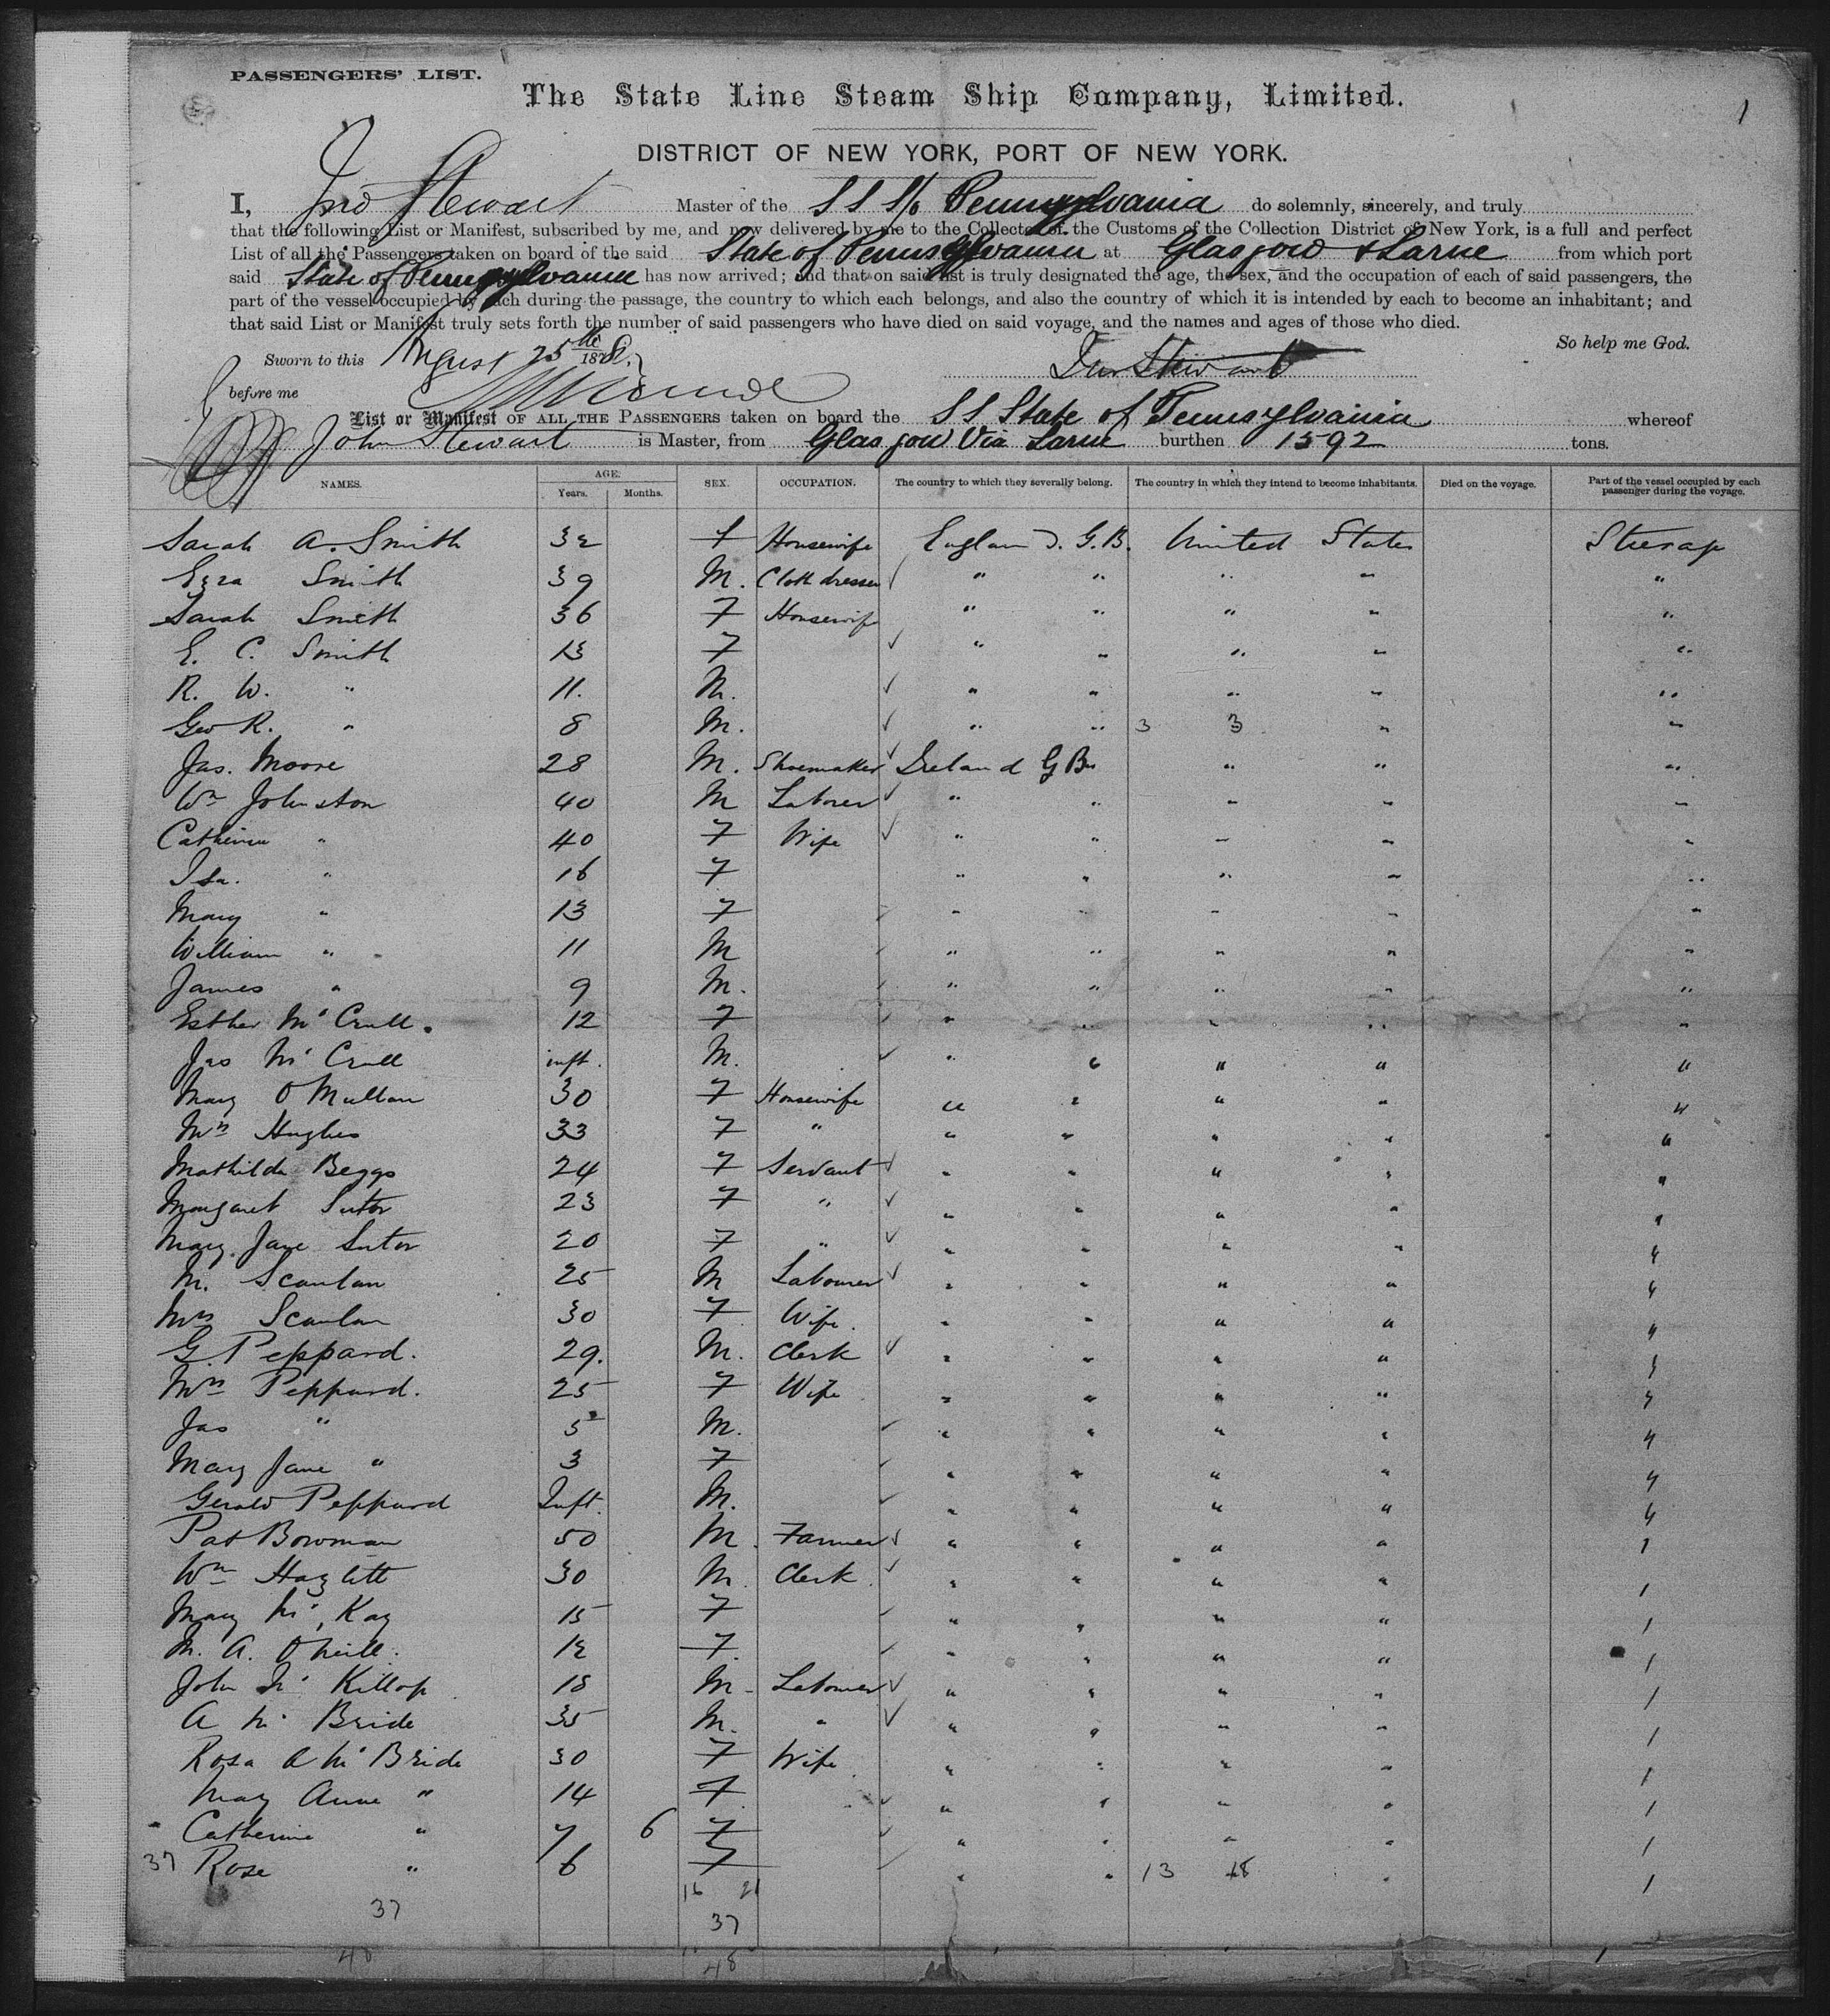 PASSENGERS' LIST.
The State Line Steam Ship Company, Limited.
1
DISTRICT OF NEW YORK, PORT OF NEW YORK.
I, Jno Stewart Master of the S S S/o Pennsylvania do solemnly, sincerely, and truly
that the following List or Manifest, subscribed by me, and now delivered by me to the Collector of the Customs of the Collection District of New York, is a full and perfect
List of all the Passengers taken on board of the said State of Pennsylvania at Glasgow & Larne from which port
said State of Pennsylvania has now arrived; and that on said list is truly designated the age, the sex, and the occupation of each of said passengers, the
part of the vessel occupied by each during the passage, the country to which each belongs, and also the country of which it is intended by each to become an inhabitant; and
that said List or Manifest truly sets forth the number of said passengers who have died on said voyage, and the names and ages of those who died.
So help me God.
Sworn to this August 25th 188 Jno Stewart
before me
List or Manifest OF ALL THE PASSENGERS taken on board the S S State of Pennsylvania whereof
John Stewart is Master, from Glasgow Via Larne burthen 1592 tons.
NAMES. AGE. Years. Months. SEX. OCCUPATION. The country to which they severally belong. The country in which they intend to become inhabitants. Died on the voyage. Part of the vessel occupied by each passenger during the voyage.
Sarah A. Smith 32 f Housewife England. G.B. United States Steerage
Ezra Smith 39 M. Cloth dresser " " " " "
Sarah Smith 36 F Housewife " " " " "
E. C. Smith 13 F " " " " "
R. W. " 11. M. " " " " "
Geo R. " 8 M. " " 3 3 " "
Jas. Moore 28 M. Shoemaker Ireland G B " " "
Wm Johnston 40 M Laborer " " " " "
Catherine " 40 F Wife " " " " "
Isa. " 16 F " " " " "
Mary " 13 F " " " " "
William " 11 M " " " " "
James " 9 M. " " " " "
Esther Mc Crull. 12 F " " " " "
Jas Mc Crull inft. M. " " " " "
Mary O Mullan 30 F Housewife " " " " "
Mrs Hughes 33 F " " " " " "
Mathilda Beggs 24 F Servant " " " " "
Margaret Sutor 23 F " " " " " "
Mary Jane Sutor 20 F " " " " " "
M. Scanlan 25 M Labourer " " " " "
Mrs Scanlan 30 F Wife. " " " " "
G. Peppard. 29. M. Clerk " " " " "
Mrs Peppard. 25 F Wife " " " " "
Jas " 5 M. " " " " "
Mary Jane " 3 F " " " " "
Gerald Peppard Inft. M. " " " " "
Pat Bowman 50 M. Farmer " " " " "
Wm Hazlitt 30 M. Clerk. " " " " "
Mary Mc Kay 15 F " " " " "
M. A. O'Neill. 12 F. " " " " "
John Mc Killop 18 M. Labourer " " " " "
A Mc Bride 35 M. " " " " " "
Rosa A Mc Bride 30 F Wife " " " " "
Mary Anne " 14 F. " " " " "
Catherine " 7 6 F " " " " "
37 Rose " 6 F " " 13 18 " "
16 21
37 37
48 48